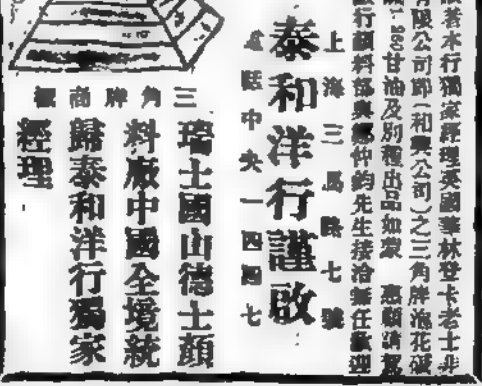 啟者本行獨家經理英國華林登卡老士非
有限公司即(和興公司)之三角牌泡花碱
甘油及別種出品如蒙 惠顧請駕
行顏料部與應仲鈞先生接洽無任歡迎
上海三馬路七號
泰和洋行謹啟
電話中央一四四七
三角牌商標
瑞士國山德士顏
料廠中國全境統
歸泰和洋行獨家
經理